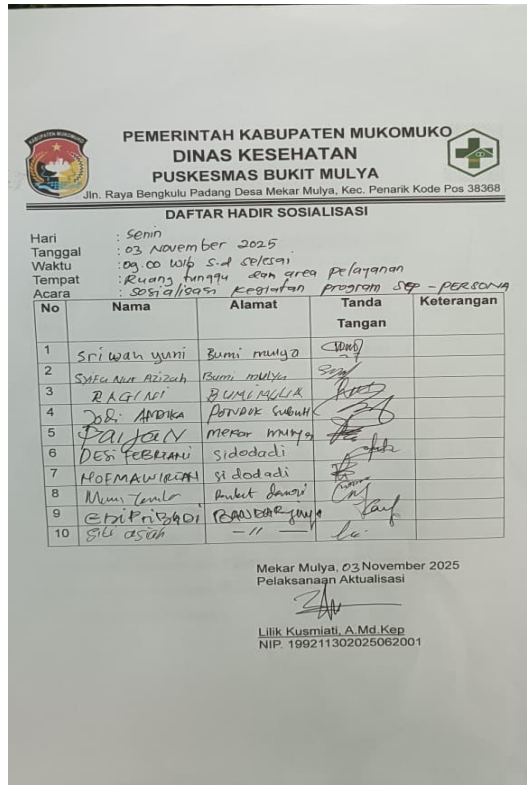 KABUPATEN MUKOMUKO
PEMERINTAH KABUPATEN MUKOMUKO
DINAS KESEHATAN
PUSKESMAS BUKIT MULYA
Jln. Raya Bengkulu Padang Desa Mekar Mulya, Kec. Penarik Kode Pos 38368
DAFTAR HADIR SOSIALISASI
Hari : Senin
Tanggal : 03 November 2025
Waktu : 09.00 Wib s.d selesai
Tempat : Ruang tunggu dan area pelayanan
Acara : Sosialisasi kegiatan program SEP - PERSONA
No Nama Alamat Tanda Tangan Keterangan
1 Sri wah yuni Bumi mulya
2 Syifa Nur Azizah Bumi mulya
3 RAGINI BUMI MULIA
4 Jodi ANDIKA PONDUK SUBUH
5 PAIJAN mekar mulya
6 DESi FEBRIANI sidodadi
7 sidodadi
8
9 EDi PRiBADI BANDAR jaya
10 Siti asiah - 11 -
Mekar Mulya, 03 November 2025
Pelaksanaan Aktualisasi
Lilik Kusmiati, A.Md.Kep
NIP. 199211302025062001